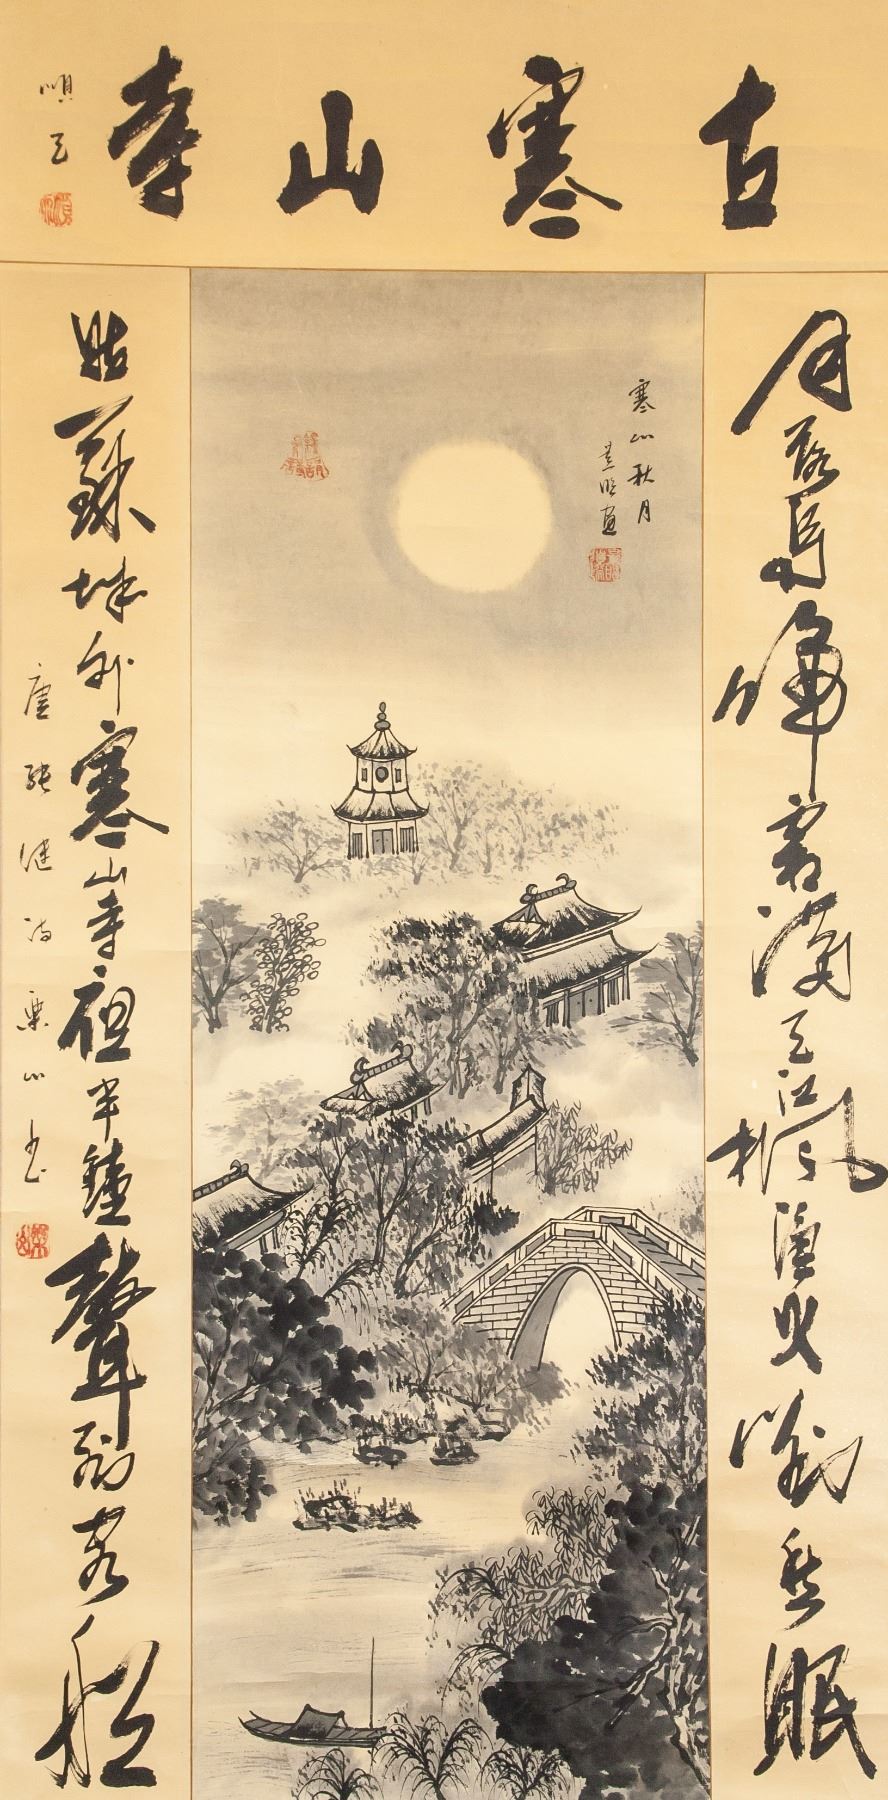 古寒山寺
月落烏啼霜滿天江楓漁火對愁眠
寒山秋月
姑蘇城外寒山寺夜半鐘聲到客船
唐張继詩栗山书